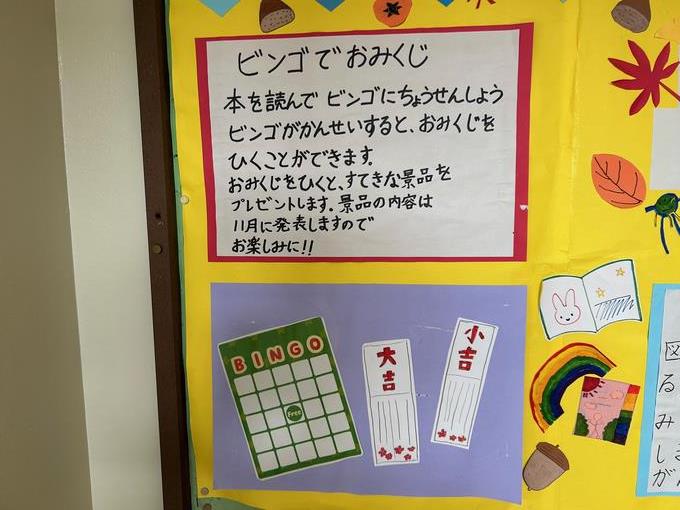 ビンゴでおみくじ
本を読んで ビンゴにちょうせんしよう
ビンゴがかんせいすると、おみくじを
ひくことができます。
おみくじをひくと、すてきな景品を
プレゼントします。景品の内容は
11月に発表しますので
お楽しみに!!
BINGO
Free
大吉
小吉
図
る
み
し
が